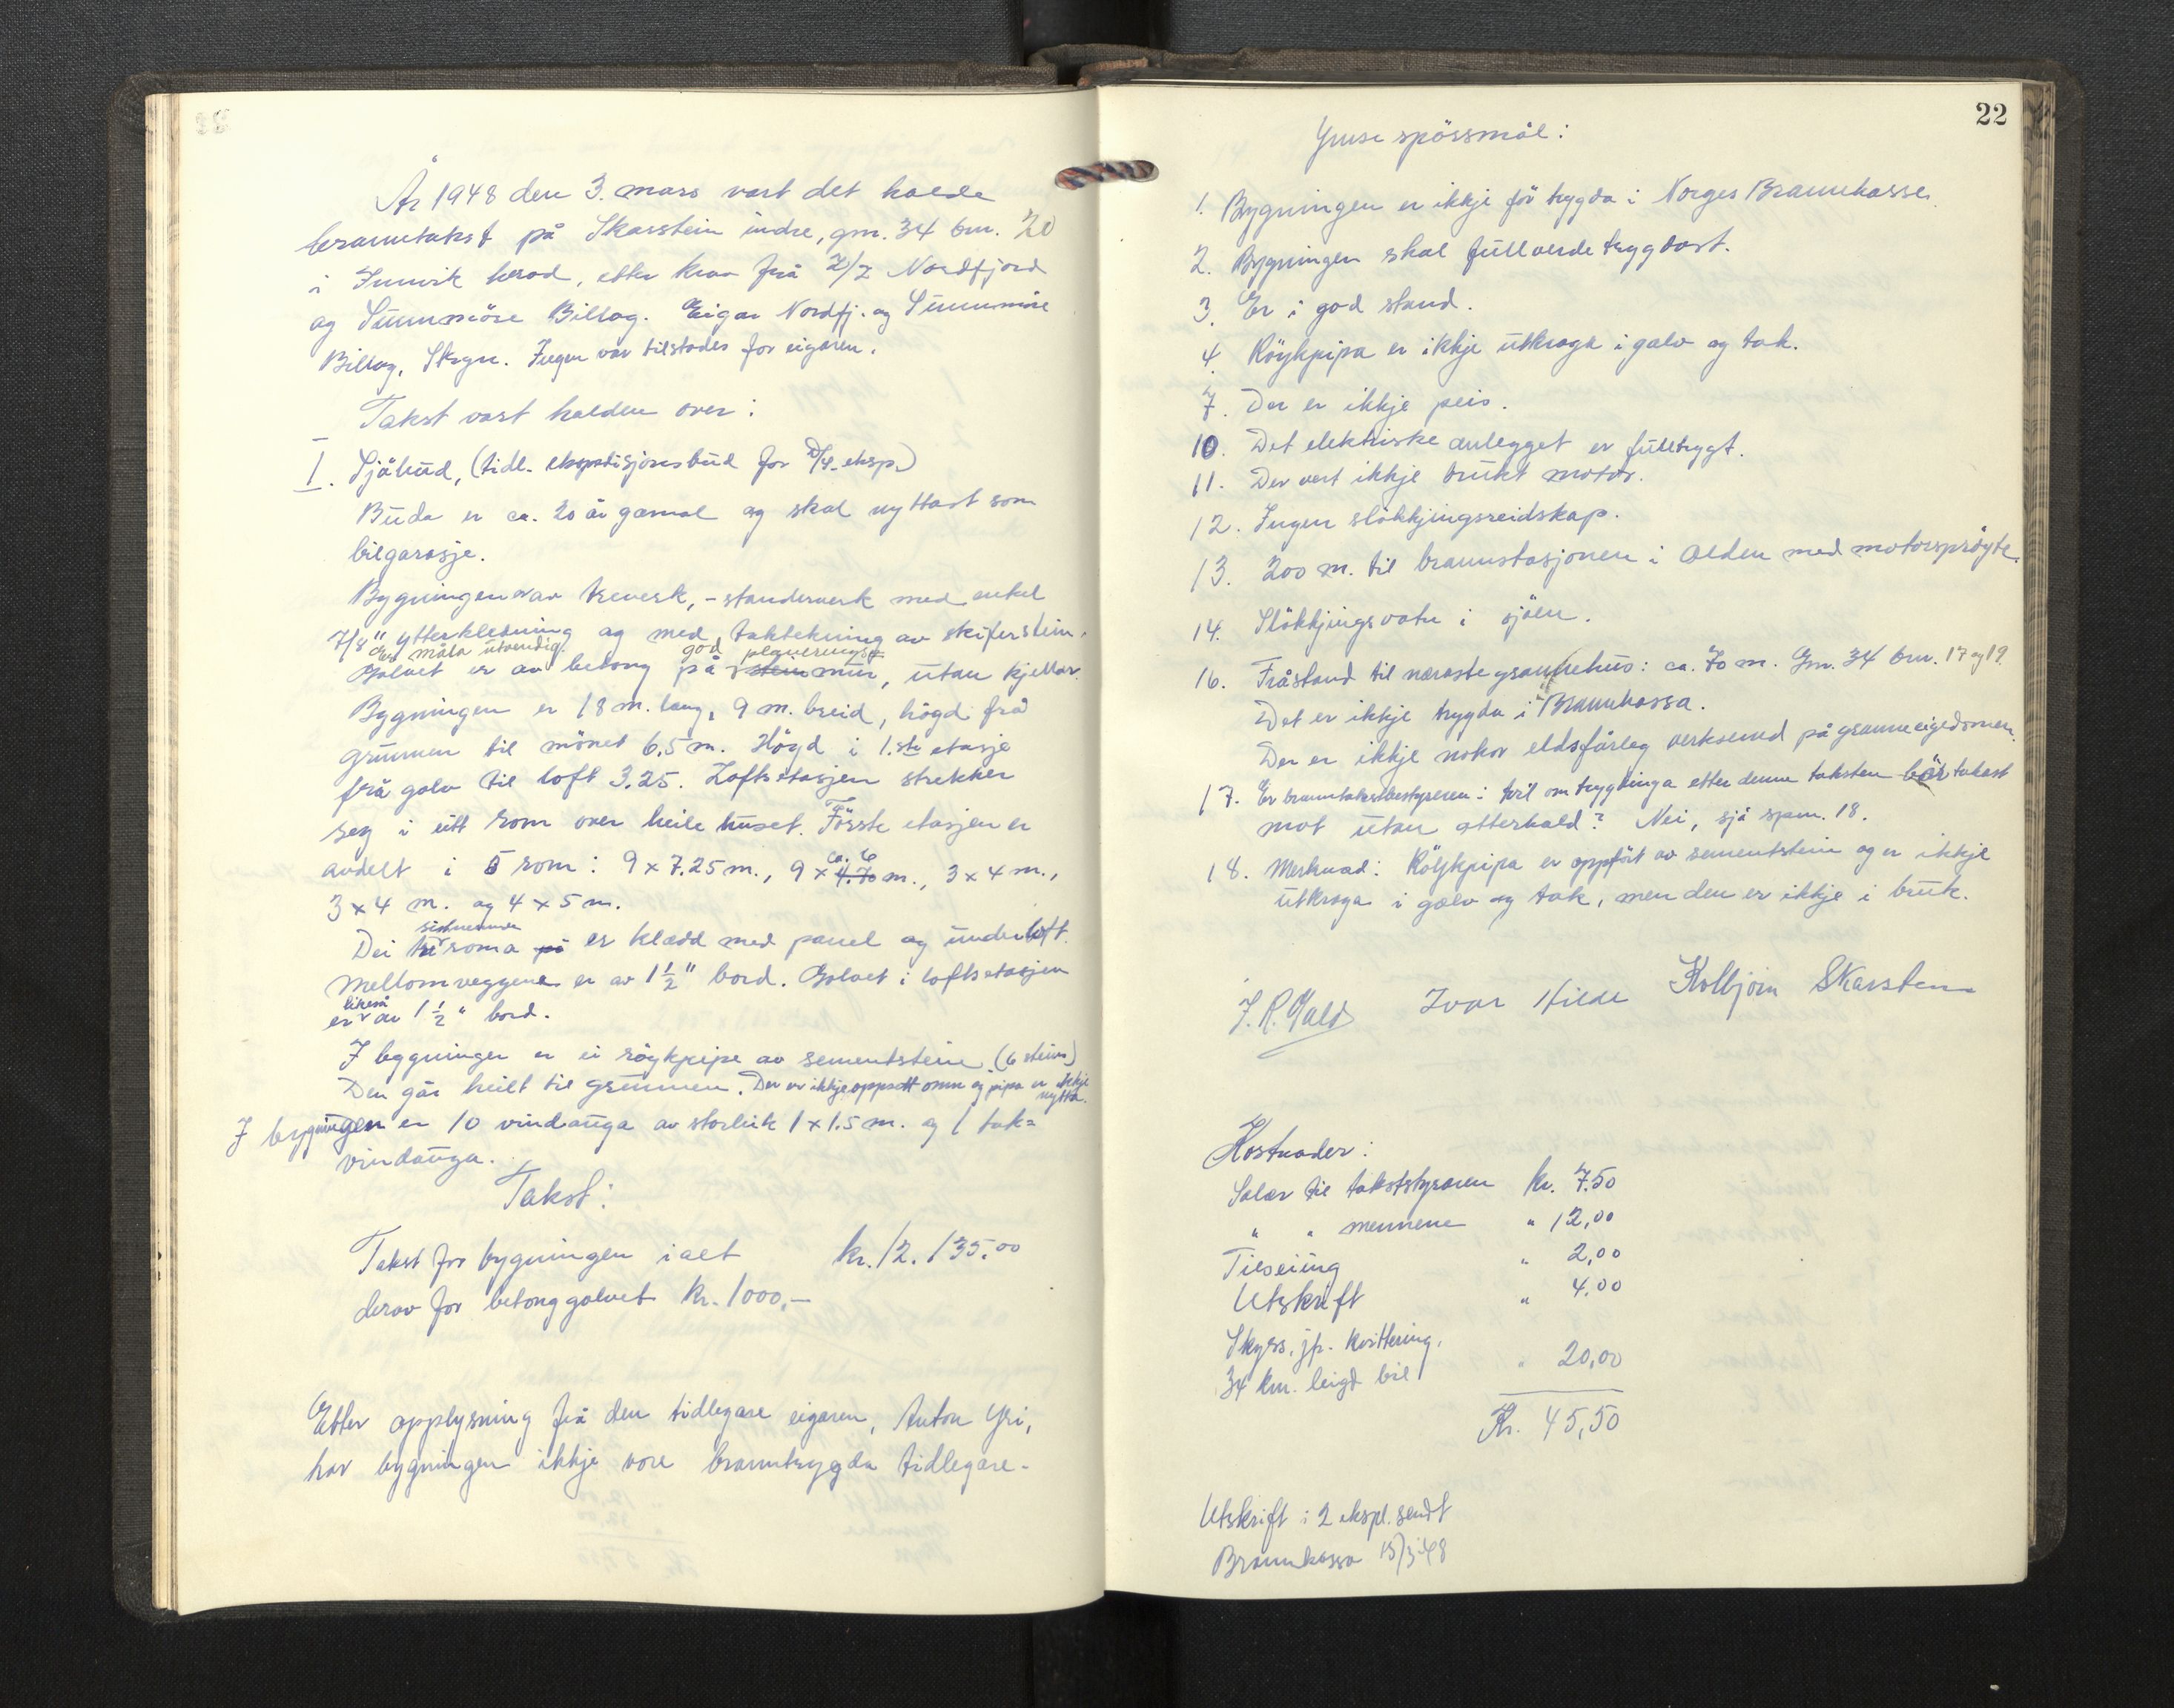 År 1948 den 3. mars vart det halde
branntakst på Skarstein indre, gnr. 34 bnr. 20
i Innvik herad, etter krav frå L/L Nordfjord
og Sunnmöre Billag. Eigar Nordfj. og Sunnmöre
Billag, Stryn. Ingen var tilstades for eigaren.
Takst vart halden over:
I. Sjöbud, (tidl. ekspedisjonsbud for D/S. eksp.)
Buda er ca. 20 år gamal og skal nyttast som
bilgarasje.
Bygningen er av treverk, - standerverk med enkel
7/8" ytterkledning og med taktekning av skiferstein.
Er måla utvendig. god
Golvet er av betong på stein mur, utan kjellar.
Bygningen er 18 m. lang, 9 m. breid, högd frå
grunnen til mönet 6,5 m. Högd i 1.ste etasje
frå golv til loft 3.25. Loftsetasjen strekker
seg i eitt rom over heile huset. Förste etasjen er
avdelt i 5 rom: 9 x 7.25 m., 9 x 4.70 ca. 6 m., 3 x 4 m.,
3 x 4 m. og 4 x 5 m.
sistnemnde
Dei tri roma på er klædd med panel og underloft.
Mellomveggene er av 1 1/2" bord. Golvet i loftsetasjen
er likeså av 1 1/2" bord.
I bygningen er ei röykpipe av sementstein (6 steins)
Den går heilt til grunnen. Der er ikkje oppsett omn og pipa er ikkje
nytta.
I bygningen er 10 vindauga av storleik 1 x 1.5 m. og 1 tak=
vindauga.
Takst:
Takst for bygningen i alt kr. 12.135.00
derav for betonggolvet kr. 1000,-
Etter opplysning frå den tidlegare eigaren, Anton Yri,
har bygningen ikkje vore branntrygda tidlegare.
22
Ymse spörsmål:
1. Bygningen er ikkje för trygda i Norges Brannkasse.
2. Bygningen skal fullverdetrygdast.
3. Er i god stand.
4. Röykpipa er ikkje utkraga i golv og tak.
7. Der er ikkje peis.
10. Det elektriske anlegget er fulltrygt.
11. Der vert ikkje brukt motor.
12. Ingen slökkjingsreidskap.
13. 200 m. til brannstasjonen i Olden med motorspröyte.
14. Slökkjingsvatn i sjöen.
16. Fråstand til næraste grannehus: ca. 70 m. Gnr. 34 bnr. 17 og 19.
Det er ikkje trygda i Brannkassa.
Der er ikkje nokor eldsfårleg verksemd på granneeigedomen.
17. Er branntakstbestyraren i tvil om trygdinga etter denne taksten bör takast
mot utan atterhald? Nei, sjå spm. 18.
18. Merknad: Röykpipa er oppfört av sementstein og er ikkje
utkraga i golv og tak, men den er ikkje i bruk.
J. R. Muld Ivar Hilde Kolbjörn Skarstein
Kostnader:
Salær til takststyraren kr. 7.50
" " mennene " 12,00
Tilseiing " 2,00
Utskrift " 4,00
Skyss, jfr. kvittering.
34 km. leigd bil " 20,00
Kr. 45,50
Utskrift i 2 ekspl. sendt
Brannkassa 15/3-48